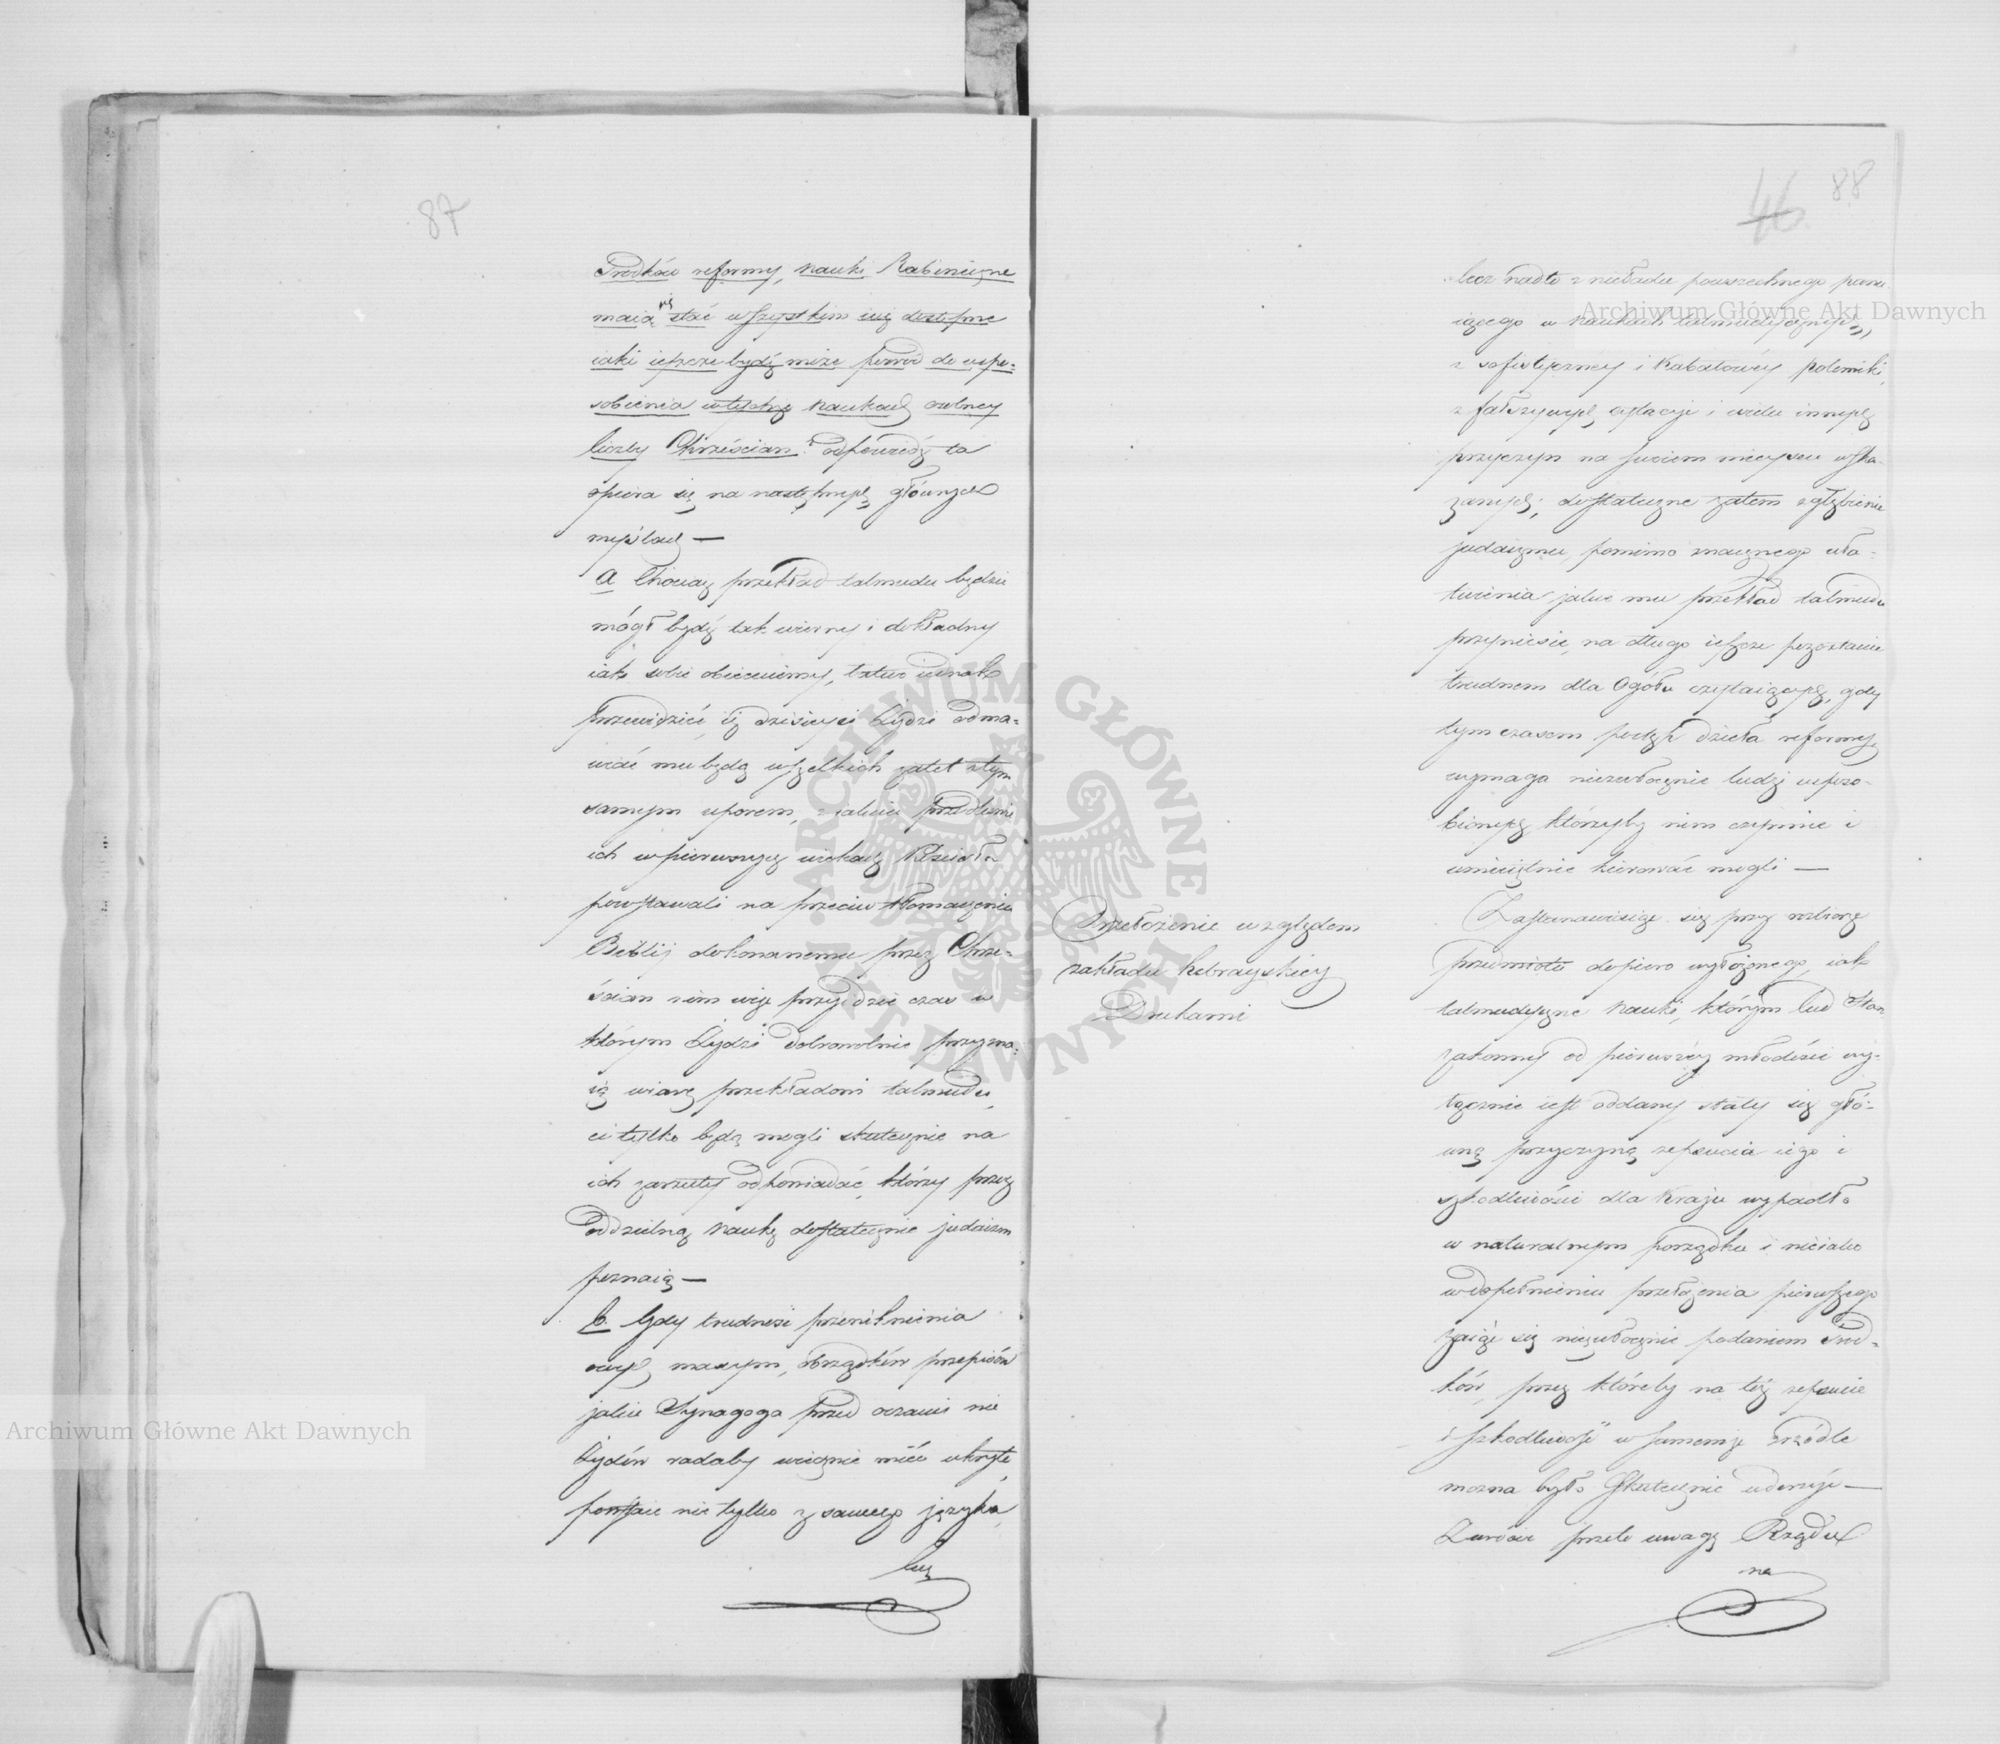 87
Srodków reformy, nauki Rabiniczne
maią się stać wszystkim iuż dostępne
iaki ieszcze bydź może powód do uspo-
sobienia w tychże naukach osobney
liczby Chrześcian? odpowiedź ta
opiera się na następnych głównych
myślach —
a Chociaż przekład talmudu będzie
mógł bydź tak wierny i dokładny
iak sobie obiecuiemy, łatwo iednak
przewidzieć, iż dzisieysi Żydzi odma-
wiać mu będą wszelkich zalet z tym
samym uporem, z iakim przodkowie
ich w pierwszych wiekach Kościoła
powstawali na przeciw tłomaczeniu
Biblij dokonanemu przez Chrze-
ścian nim więc przyydzie czas w
którym Żydzi dobrowolnie przyzna-
ią wiarę przekładowi talmudu,
ci tylko będą mogli skutecznie na
ich zarzuty odpowiadać, którzy przez
oddzielną naukę dostatecznie judaizm
poznaią —
b. Gdy trudność przeniknienia
owych maxym, obrządków przepisów
jakie Synagoga przed oczami nie
Żydów radaby wiecznie mieć ukryte,
powstaie nie tylko z samego języka,
lecz
46 88
lecz nadto z nieładu powszechnego panu-
iącego w naukach talmudycznych,
z sofistyczney i Kabałowey polemiki,
z fałszywych cytacyi i wielu innych
przyczyn na swoiem mieyscu wska-
zanych; dostateczne zatem zgłębienie
judaizmu, pomimo znacznego uła-
twienia jakie mu przekład talmudu
przyniesie, na długo ieszcze pozostanie
trudnem dla Ogółu czytaiących, gdy
tym czasem postęp dzieła reformy
wymaga niezwłocznie ludzi usposo-
bionych którzyby nim czynnie i
umieiętnie kierować mogli —
Przełożenie względem
zakładu hebrayskiey
Drukarni
Zastanawiaiąc się przy rozbiorze
przedmiotu dopiero wyłożonego, iak
talmudyczne nauki, którym lud Staro-
zakonny od pierwszéy młodości wy-
łącznie iest oddany, stały się głó-
wną przyczyną zepsucia iego i
szkodliwości dla Kraju wypadło
w naturalnym porządku i nieiako
w dopełnieniu przełożenia pierwszego
zaiąć się niezwłocznie podaniem Srod-
ków, przez któreby na też zepsucie
i szkodliwość w samemże źródle
można było skutecznie uderzyć —
Zwrócić przeto uwagę Rządu
na
Archiwum Główne Akt Dawnych
Archiwum Główne Akt Dawnych
ARCHIWUM GŁÓWNE AKT DAWNYCH